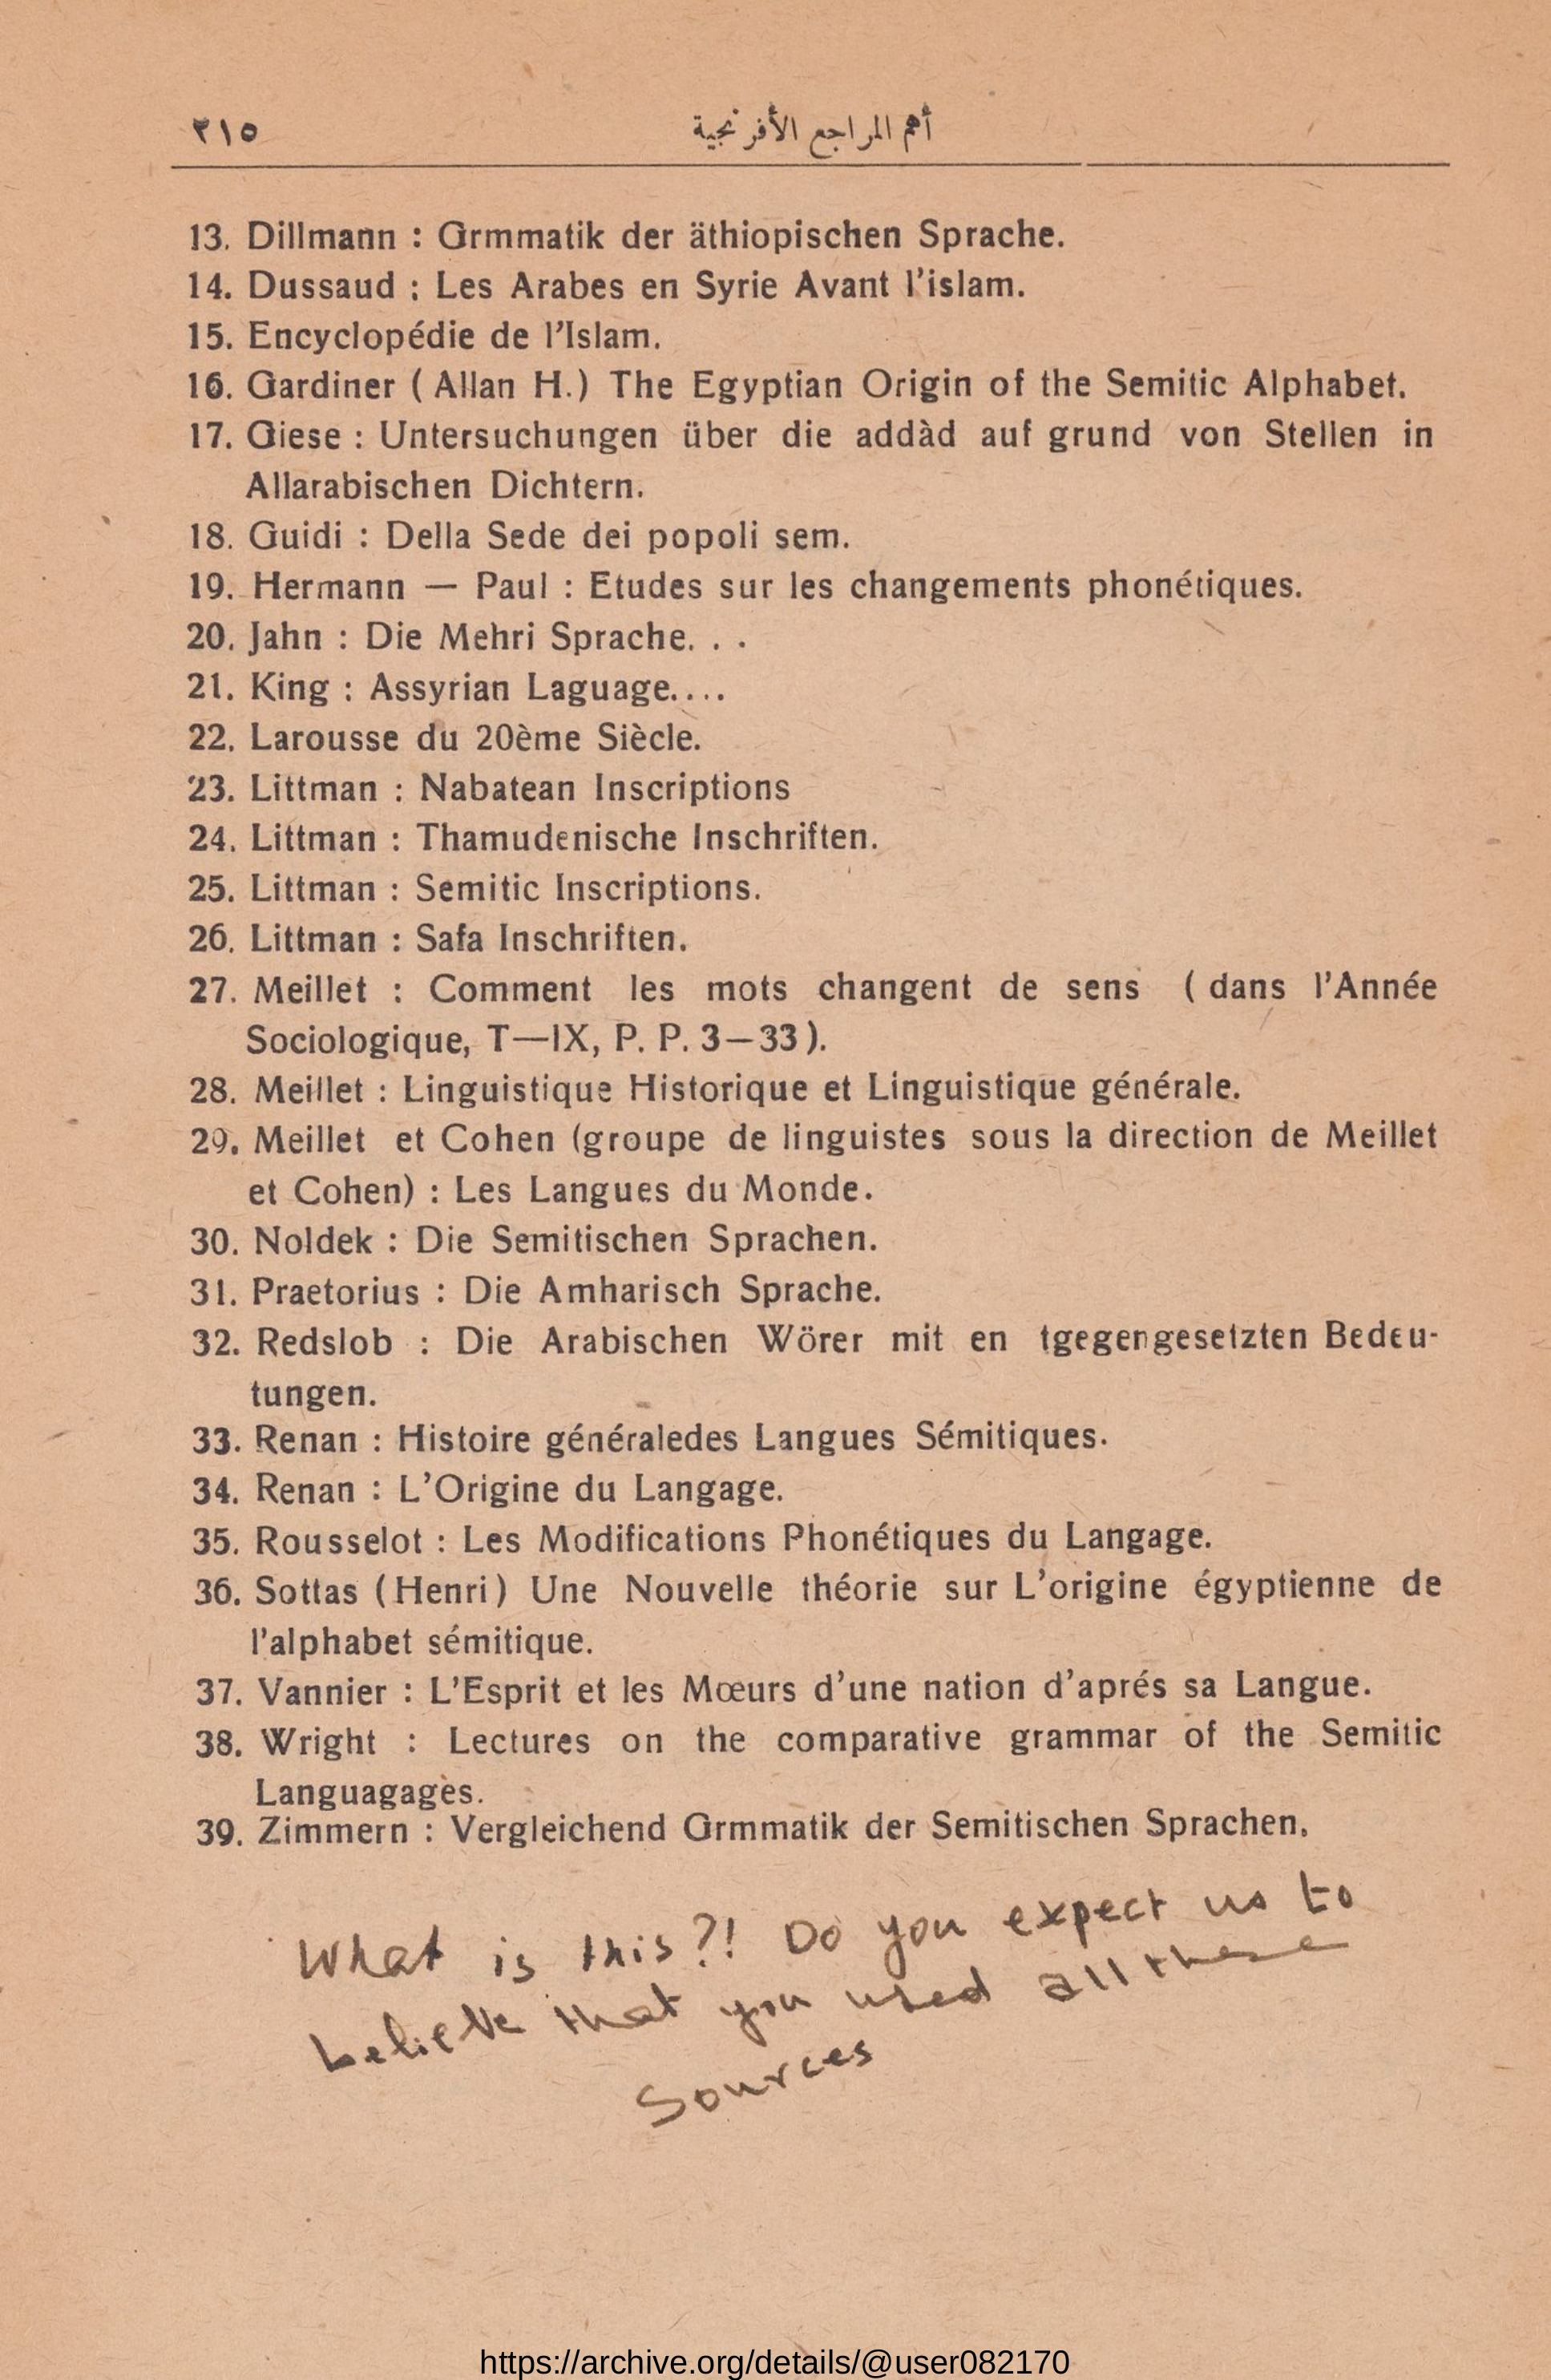 ٢١٥
أهم المراجع الأفرنجية
13. Dillmann : Grmmatik der äthiopischen Sprache.
14. Dussaud : Les Arabes en Syrie Avant l'islam.
15. Encyclopédie de l'Islam.
16. Gardiner ( Allan H.) The Egyptian Origin of the Semitic Alphabet.
17. Giese : Untersuchungen über die addàd auf grund von Stellen in
Allarabischen Dichtern.
18. Guidi : Della Sede dei popoli sem.
19. Hermann — Paul : Etudes sur les changements phonétiques.
20. Jahn : Die Mehri Sprache. . .
21. King : Assyrian Laguage....
22. Larousse du 20ème Siècle.
23. Littman : Nabatean Inscriptions
24. Littman : Thamudenische Inschriften.
25. Littman : Semitic Inscriptions.
26. Littman : Safa Inschriften.
27. Meillet : Comment les mots changent de sens ( dans l'Année
Sociologique, T—IX, P. P. 3—33 ).
28. Meillet : Linguistique Historique et Linguistique générale.
29. Meillet et Cohen (groupe de linguistes sous la direction de Meillet
et Cohen) : Les Langues du Monde.
30. Noldek : Die Semitischen Sprachen.
31. Praetorius : Die Amharisch Sprache.
32. Redslob : Die Arabischen Wörer mit en tgegengesetzten Bedeu-
tungen.
33. Renan : Histoire généraledes Langues Sémitiques.
34. Renan : L'Origine du Langage.
35. Rousselot : Les Modifications Phonétiques du Langage.
36. Sottas (Henri) Une Nouvelle théorie sur L'origine égyptienne de
l'alphabet sémitique.
37. Vannier : L'Esprit et les Mœurs d'une nation d'aprés sa Langue.
38. Wright : Lectures on the comparative grammar of the Semitic
Languagages.
39. Zimmern : Vergleichend Grmmatik der Semitischen Sprachen.
What is this?! Do you expect us to
believe that you used all these
Sources
https://archive.org/details/@user082170